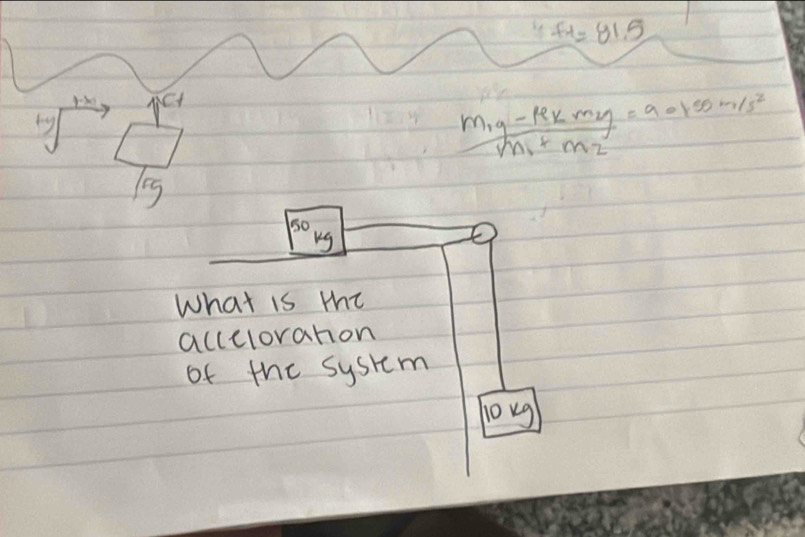 ft = 81.5
+x
+y
Ft
Fg
m₁g - μk m₂g = a
m₁ + m₂
50 kg
What is the
acceloration
of the system
10 kg